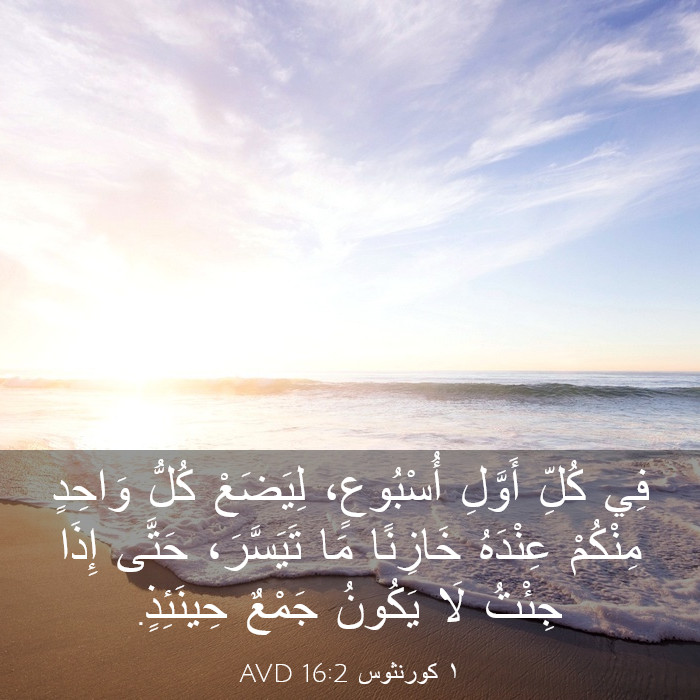 فِي كُلِّ أَوَّلِ أُسْبُوعٍ، لِيَضَعْ كُلُّ وَاحِدٍ
مِنْكُمْ عِنْدَهُ خَازِنًا مَا تَيَسَّرَ، حَتَّى إِذَا
جِئْتُ لَا يَكُونُ جَمْعٌ حِينَئِذٍ.
١ كورنثوس 16:2 AVD